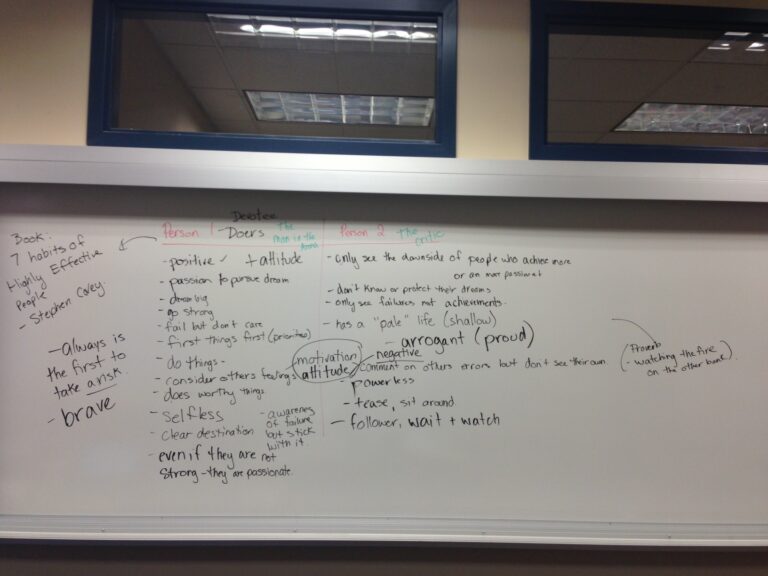 Book:
7 habits of
Highly Effective
People
- Stephen Covey
- always is
the first to
take a risk.
- brave
Devotee
Person 1 Doers The
man in the
arena
- positive ✓ + attitude
- passion to pursue dream
- dream big
- go strong
- fail but don't care
- first things first (priorities)
- do things -
- consider others feelings
- does worthy things
- selfless
- clear destination
- awareness
of failure
but stick
with it.
- even if they are not
strong - they are passionate
motivation
attitude
Person 2 The
critic
- only see the downside of people who achieve more
or an more passionat
- don't know or protect their dreams
- only see failures not achievements.
- has a "pale" life (shallow)
- arrogant (proud)
negative
comment on others errors but don't see their own.
- powerless
- tease, sit around
- follower, wait + watch
Proverb
(- watching the fire
on the other bank).